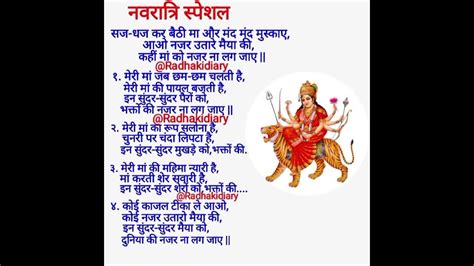 नवरात्रि स्पेशल
सज-धज कर बैठी मा और मंद मंद मुस्काए,
आओ नजर उतारे मैया की,
कहीं मां को नजर ना लग जाए ||
@Radhakidiary
१. मेरी मां जब छम-छम चलती है,
मेरी मां की पायल बजती है,
इन सुंदर-सुंदर पैरों को,
भक्तों की नजर ना लग जाए ||
@Radhakidiary
२. मेरी मां का रूप सलोना है,
चुनरी पर चंदा लिपटा है,
इन सुंदर-सुंदर मुखड़े को,भक्तों की.
३. मेरी मां की महिमा न्यारी है,
मां करती शेर सवारी है,
इन सुंदर-सुंदर शेरों को,भक्तों की....
@Radhakidiary
४. कोई काजल टीका ले आओ,
कोई नजर उतारो मैया की,
इन सुंदर-सुंदर मैया को,
दुनिया की नजर ना लग जाए ||